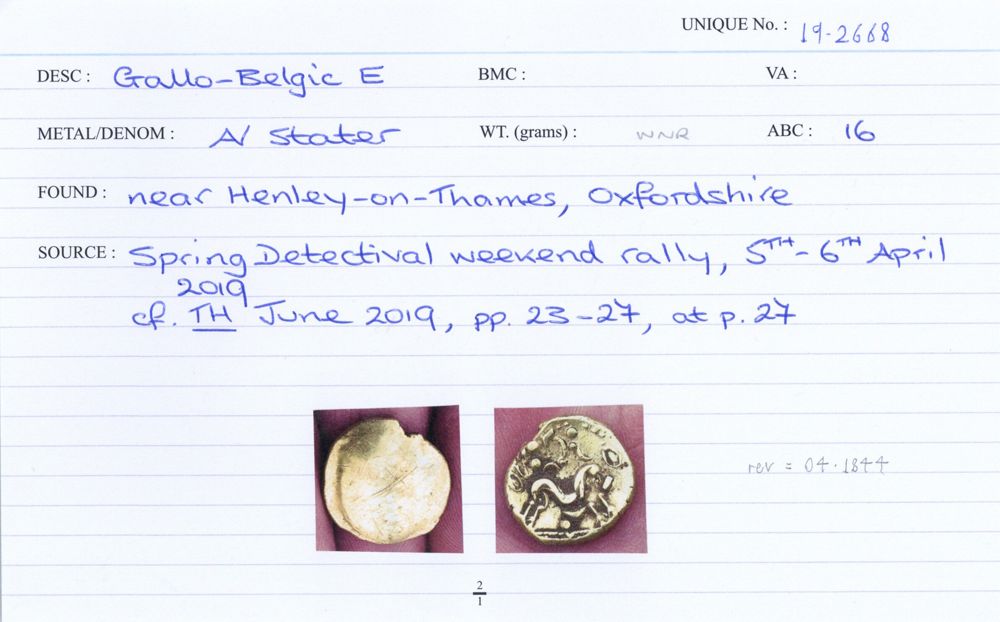 UNIQUE No. : 19-2668
DESC : Gallo-Belgic E BMC : VA :
METAL/DENOM : A/ Stater WT. (grams) : WNR ABC : 16
FOUND : near Henley-on-Thames, Oxfordshire
SOURCE : Spring Detectival weekend rally, 5TH - 6TH April
2019
cf. TH June 2019, pp. 23-27, at p. 27
rev = 04.1844
2
1